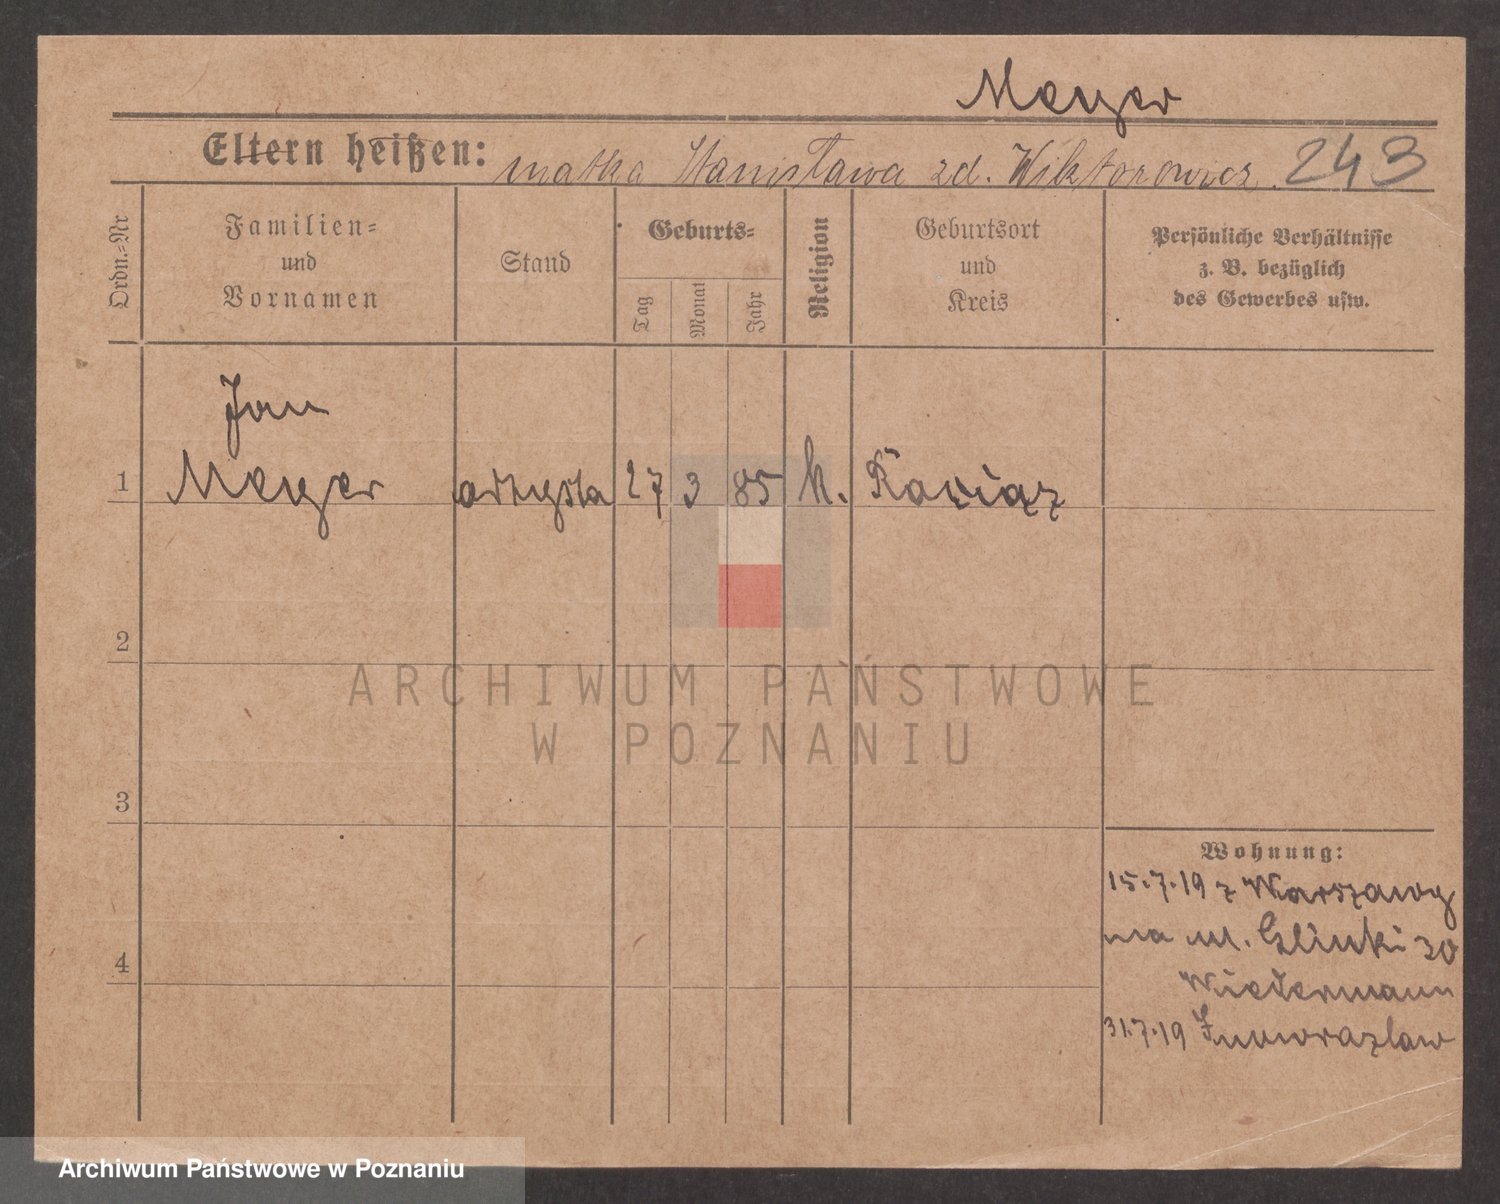 Meyer
Eltern heißen: matka Stanisława zd. Wiktorowicz. 243
Ordn.-Nr
Familien-
und
Vornamen
Stand
Geburts-
Tag
Monat
Jahr
Religion
Geburtsort
und
Kreis
Persönliche Verhältnisse
z. B. bezüglich
des Gewerbes usw.
Jan
1 Meyer artysta 27 3 85 k. Raciąz
2
ARCHIWUM PAŃSTWOWE
W POZNANIU
3
Wohnung:
15.7.19 z Warszawy
na ul. Glinki 30
4
Wiedermann
31.7.19 Inowrazlaw
Archiwum Państwowe w Poznaniu